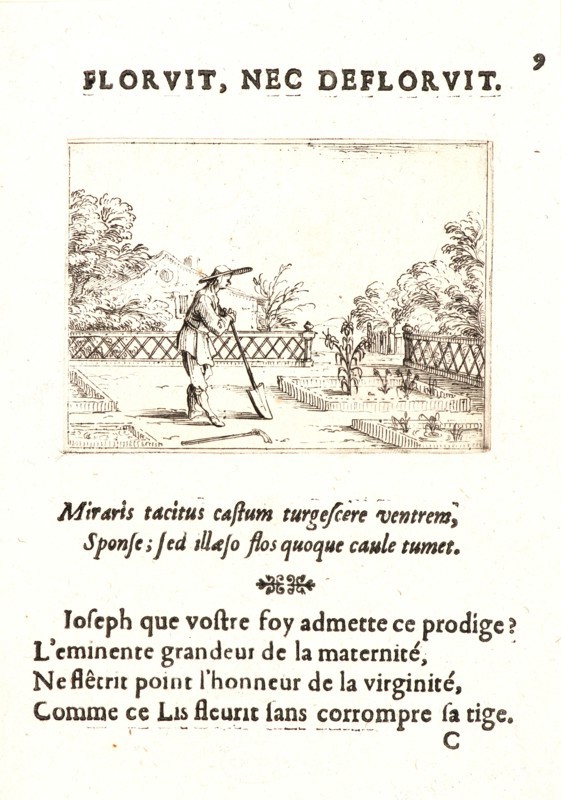 9
FLORVIT, NEC DEFLORVIT.
Miraris tacitus caſtum turgeſcere ventrem,
Sponſe; ſed illæſo flos quoque caule tumet.
Ioſeph que voſtre foy admette ce prodige?
L'eminente grandeur de la maternité,
Ne flêtrit point l'honneur de la virginité,
Comme ce Lis fleurit ſans corrompre ſa tige.
C